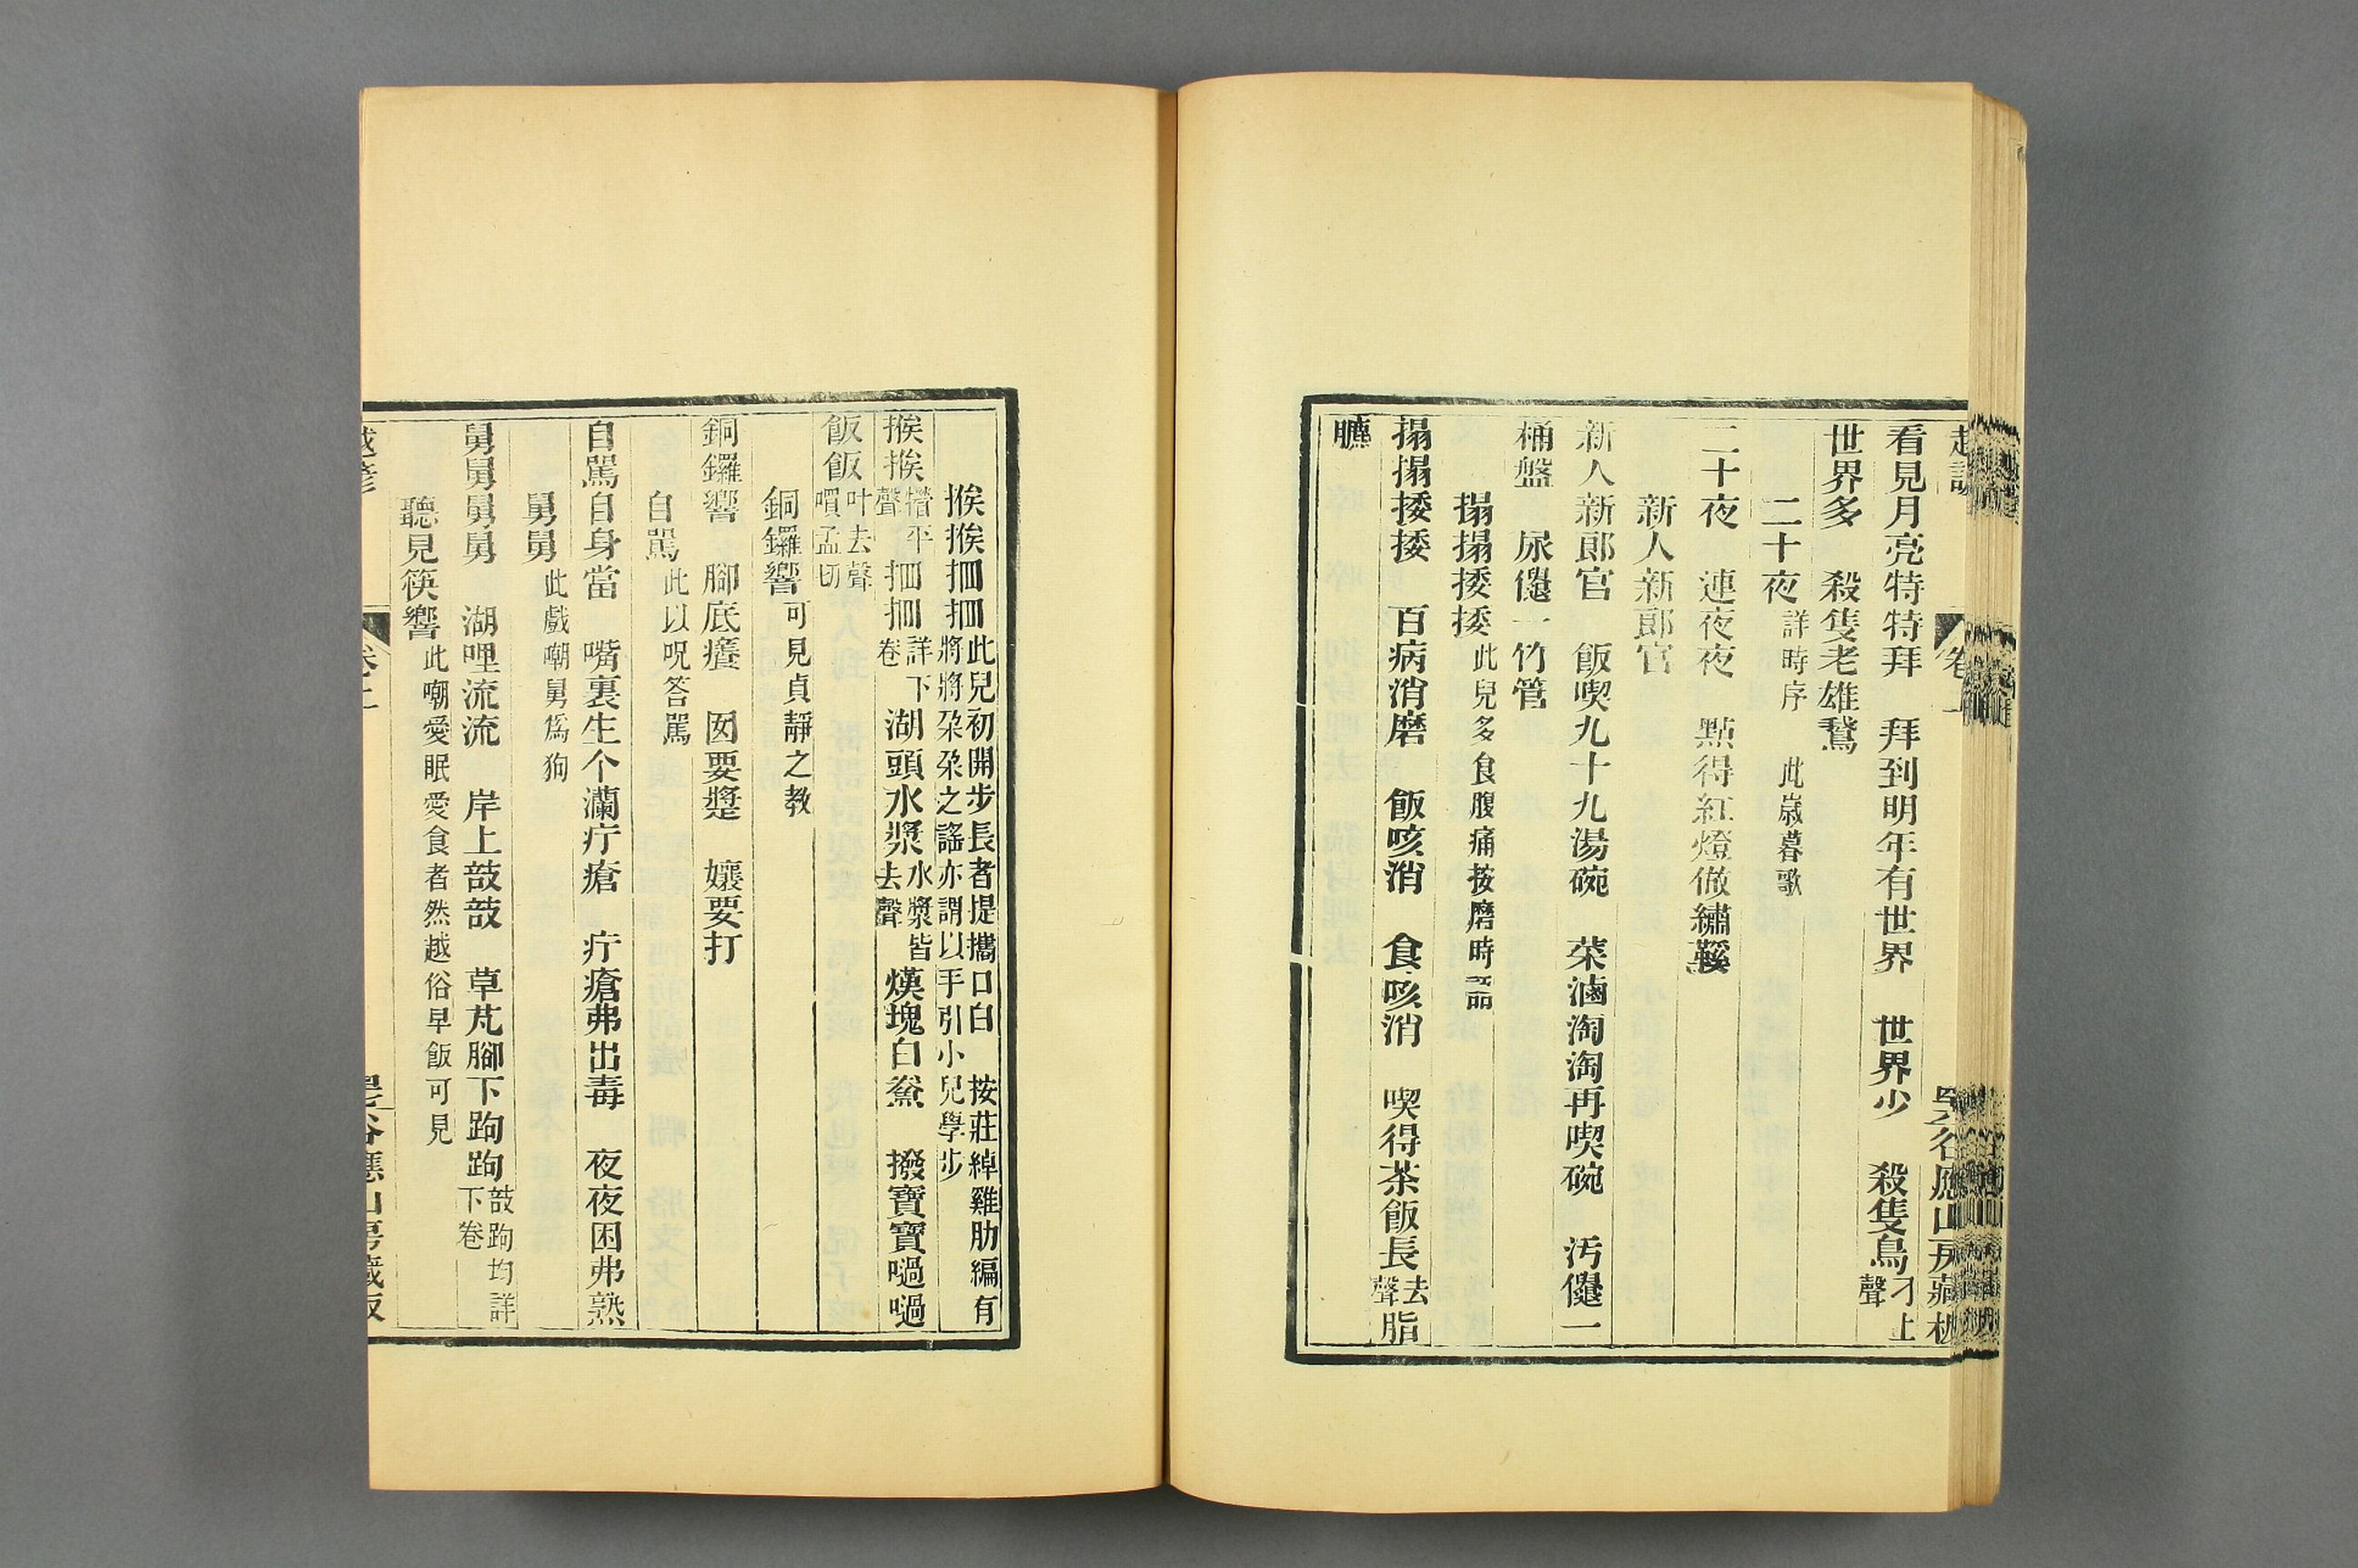 看見月亮特特拜　拜到明年有世界　世界少　殺隻鳥刁上聲
世界多　殺隻老雄鵞
二十夜詳時序　此歲暮歌
二十夜　連夜夜　點得紅燈做繡鞵
新人新郎官
新人新郎官　飯喫九十九湯碗　菜滷淘淘再喫碗　污儘一
桶盤　尿儘一竹管
搨搨捼捼此兒多食腹痛按磨時
搨搨捼捼　百病消磨　飯咳消　食咳消　喫得茶飯長去聲脂
臕
㨋㨋捆捆此兒初開步長者提攜口白　按莊綽雞肋編有將將朶朶之謠亦謂以手引小兒學步
㨋㨋　捆捆詳下卷湖頭水漿水漿皆去聲熯塊白鯗　撥寶寶喎喎
飯飯叶去聲嗊孟切
銅鑼響可見貞靜之教
銅鑼響　腳底癢　囡要𢵄　孃要打
自駡此以呪答駡
自駡自身當　嘴裏生个瀾疔瘡　疔瘡弗出毒　夜夜困弗熟
舅舅此戲嘲舅爲狗
舅舅舅舅　湖哩流流　岸上敨敨　草芃腳下跔跔敨跔均詳下卷
聽見筷響此嘲愛眠愛食者然越俗早飯可見
越諺　卷上　谷應山房藏版